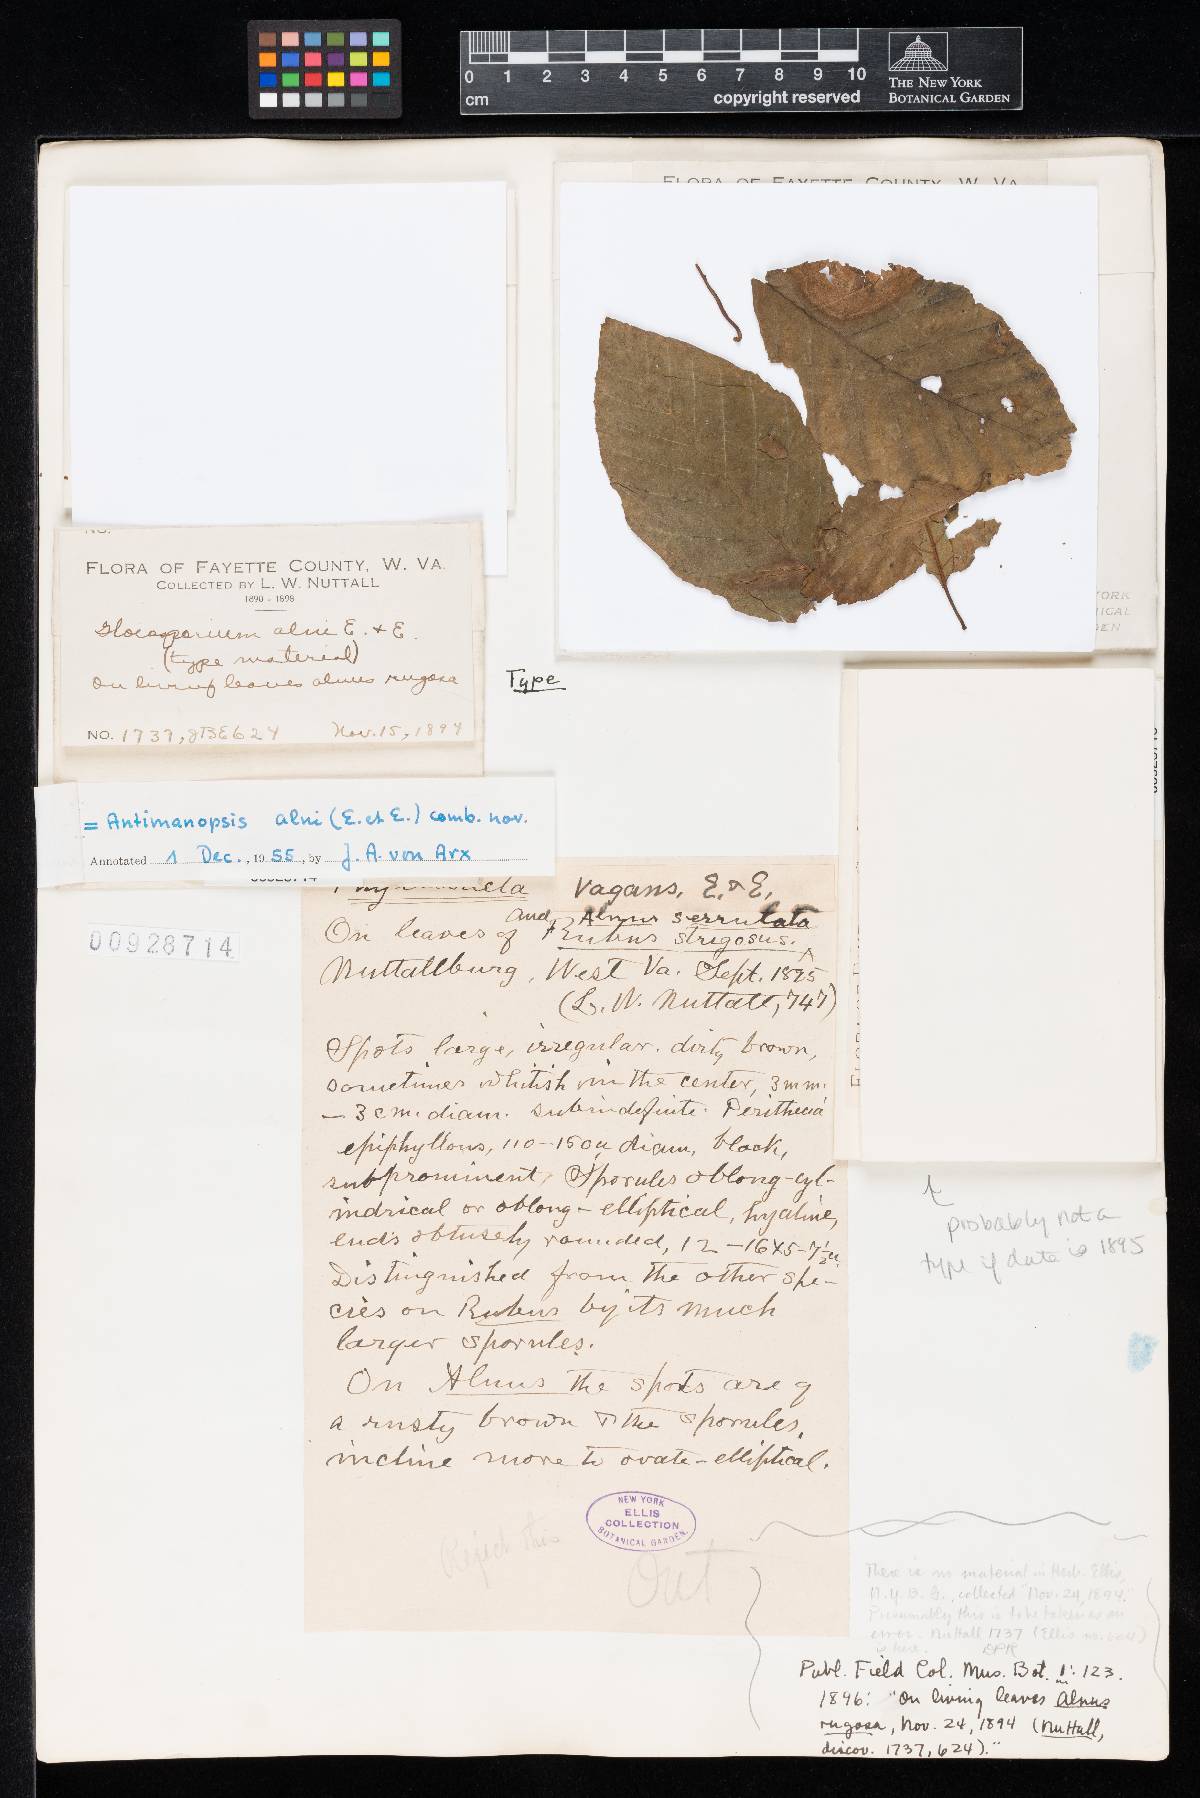 0 1 2 3 4 5 6 7 8 9 10
cm
copyright reserved
THE NEW YORK
BOTANICAL GARDEN
FLORA OF FAYETTE COUNTY, W. VA.
FLORA OF FAYETTE COUNTY, W. VA.
COLLECTED BY L. W. NUTTALL
1890 - 1898
Gloeosporium alni E. & E.
(type material)
On living leaves alnus rugosa
NO. 1737, JBE624 Nov. 15, 1894
Type
= Antimanopsis alni (E. et E.) comb. nov.
Annotated 1 Dec., 1955, by J. A. von Arx
00928714
vagans, E. & E,
and Alnus serrulata
On leaves of Rubus strigosus.
Nuttallburg, West Va. Sept. 1895
(L. W. Nuttall, 747)
Spots large, irregular. dirty brown,
sometimes whitish in the center, 3 mm.
— 3 cm. diam. subindefinite. Perithecia
epiphyllous, 110–150µ diam, black,
subprominent, Sporules oblong-cyl-
indrical or oblong-elliptical, hyaline,
ends obtusely rounded, 12–16x5–7½µ.
Distinguished from the other spe-
cies on Rubus by its much
larger sporules.
On Alnus the spots are of
a rusty brown & the sporules,
incline more to ovate-elliptical.
NEW YORK
ELLIS
COLLECTION
BOTANICAL GARDEN.
Reject this
Out
probably not a
type if date is 1895
There is no material in Herb. Ellis,
N.Y.B.G., collected "Nov. 24, 1894."
Presumably this is to be taken as an
error. Nuttall 1737 (Ellis no. 624)
is here. DPR
Publ. Field Col. Mus. Bot. 1: 123.
1896: "on living leaves Alnus
rugosa, Nov. 24, 1894 (Nuttall,
discov. 1737, 624)."